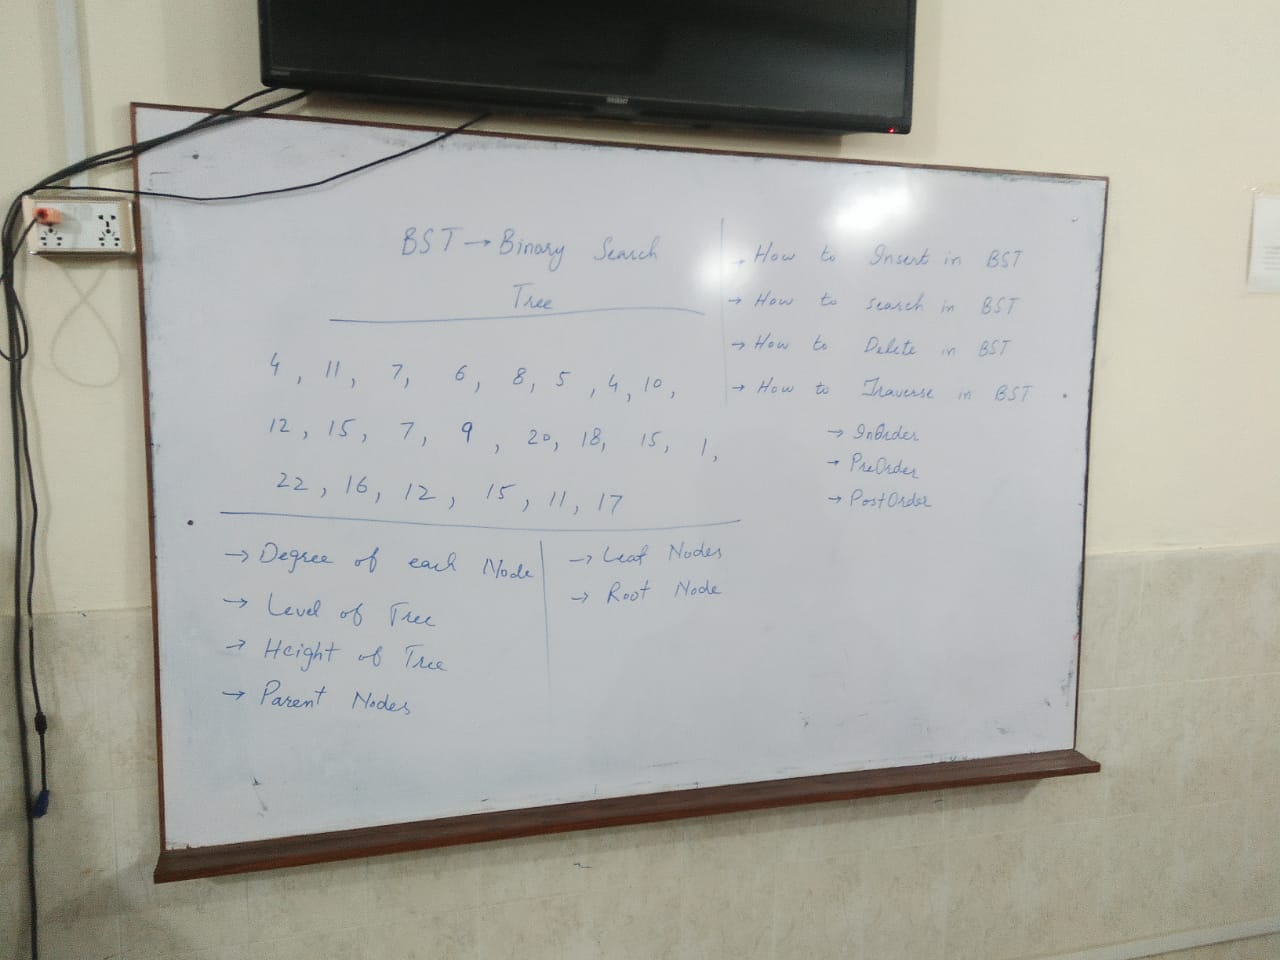 BST → Binary Search
Tree
4, 11, 7, 6, 8, 5, 4, 10,
12, 15, 7, 9, 20, 18, 15, 1,
22, 16, 12, 15, 11, 17
→ Degree of each Node
→ Level of Tree
→ Height of Tree
→ Parent Nodes
→ Leaf Nodes
→ Root Node
→ How to Insert in BST
→ How to search in BST
→ How to Delete in BST
→ How to Traverse in BST
→ InOrder
→ PreOrder
→ PostOrder